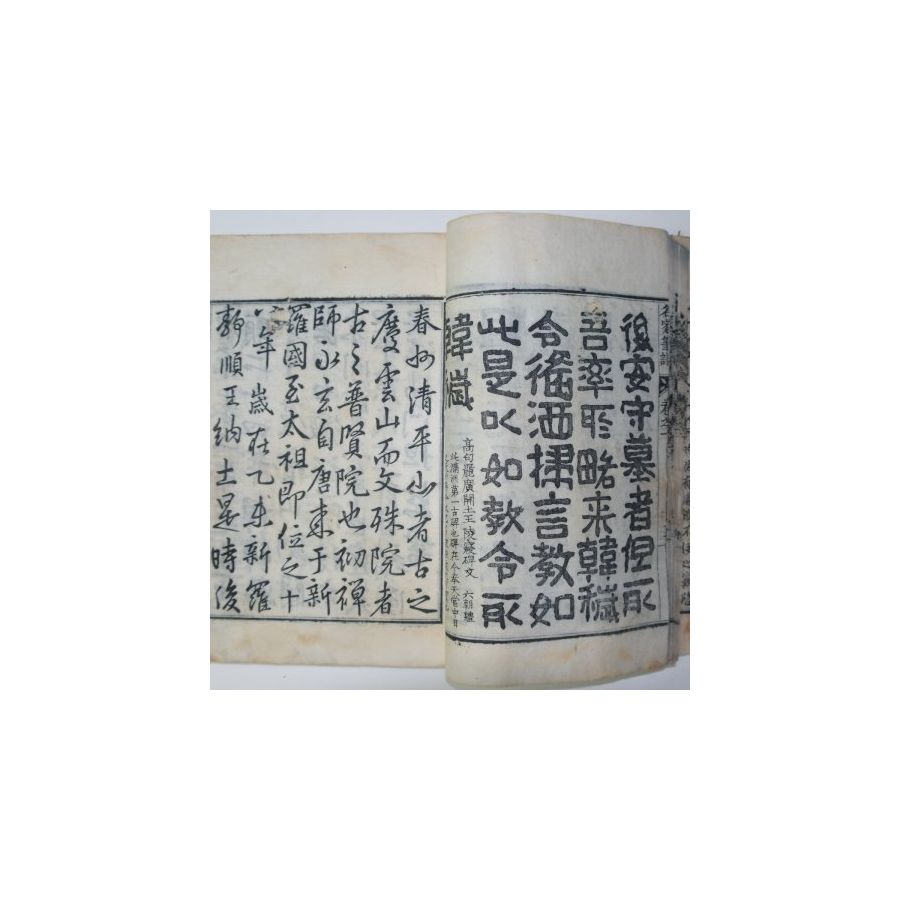 後安守墓者但取
吾率所略来韓穢
令備洒掃言教如
此是以如教令取
韓穢
高句麗廣開土王陵𥩟碑文 六朝體
此滿洲第一古碑也碑在今奉天省中
春州清平山者古之
慶雲山而文殊院者
古之普賢院也初禪
師永玄自唐來于新
羅國至太祖即位之十
八年歲在乙未新羅
敬順王納土是時後